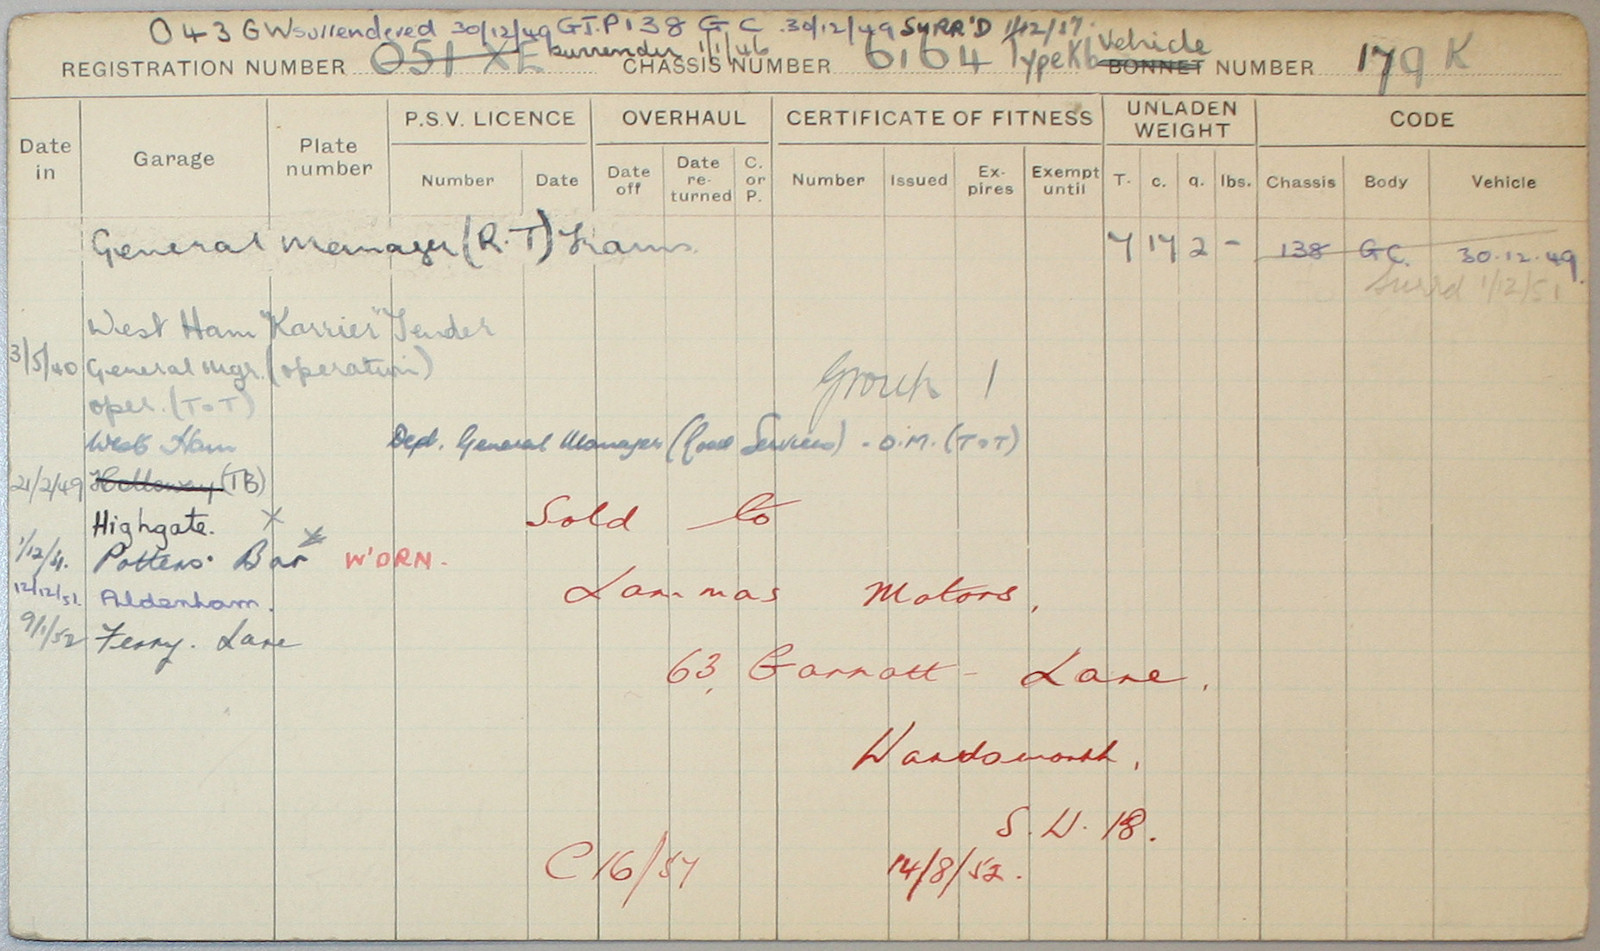 043 GW surrendered 30/12/49 GT.P 138 G C 30/12/49 SURR'D 1/12/51.
REGISTRATION NUMBER 051 XE surrender 1/1/46 CHASSIS NUMBER 6164 Type Kb Vehicle BONNET NUMBER 179 K
Date in Garage Plate number P.S.V. LICENCE OVERHAUL CERTIFICATE OF FITNESS UNLADEN WEIGHT CODE
Number Date Date off Date re-turned C. or P. Number Issued Ex-pires Exempt until T. c. q. lbs. Chassis Body Vehicle
General Manager (R.T) Trams. 7 17 2 - 138 GC. 30.12.49.
Surrd 1/12/51
West Ham "Karrier" Tender
3/5/40 General Mgr. (operation) Group 1
oper. (T.o.T)
West Ham Dept. General Manager (Road Services) - O.M. (T.o.T)
21/2/49 Holloway (TB)
Highgate. X Sold to
1/12/51. Potters Bar X W'DRN.
12/12/51. Aldenham. Lammas Motors,
9/1/52 Ferry. Lane
63, Garratt - Lane,
Wandsworth,
S.W. 18.
C 16/57 14/8/52.